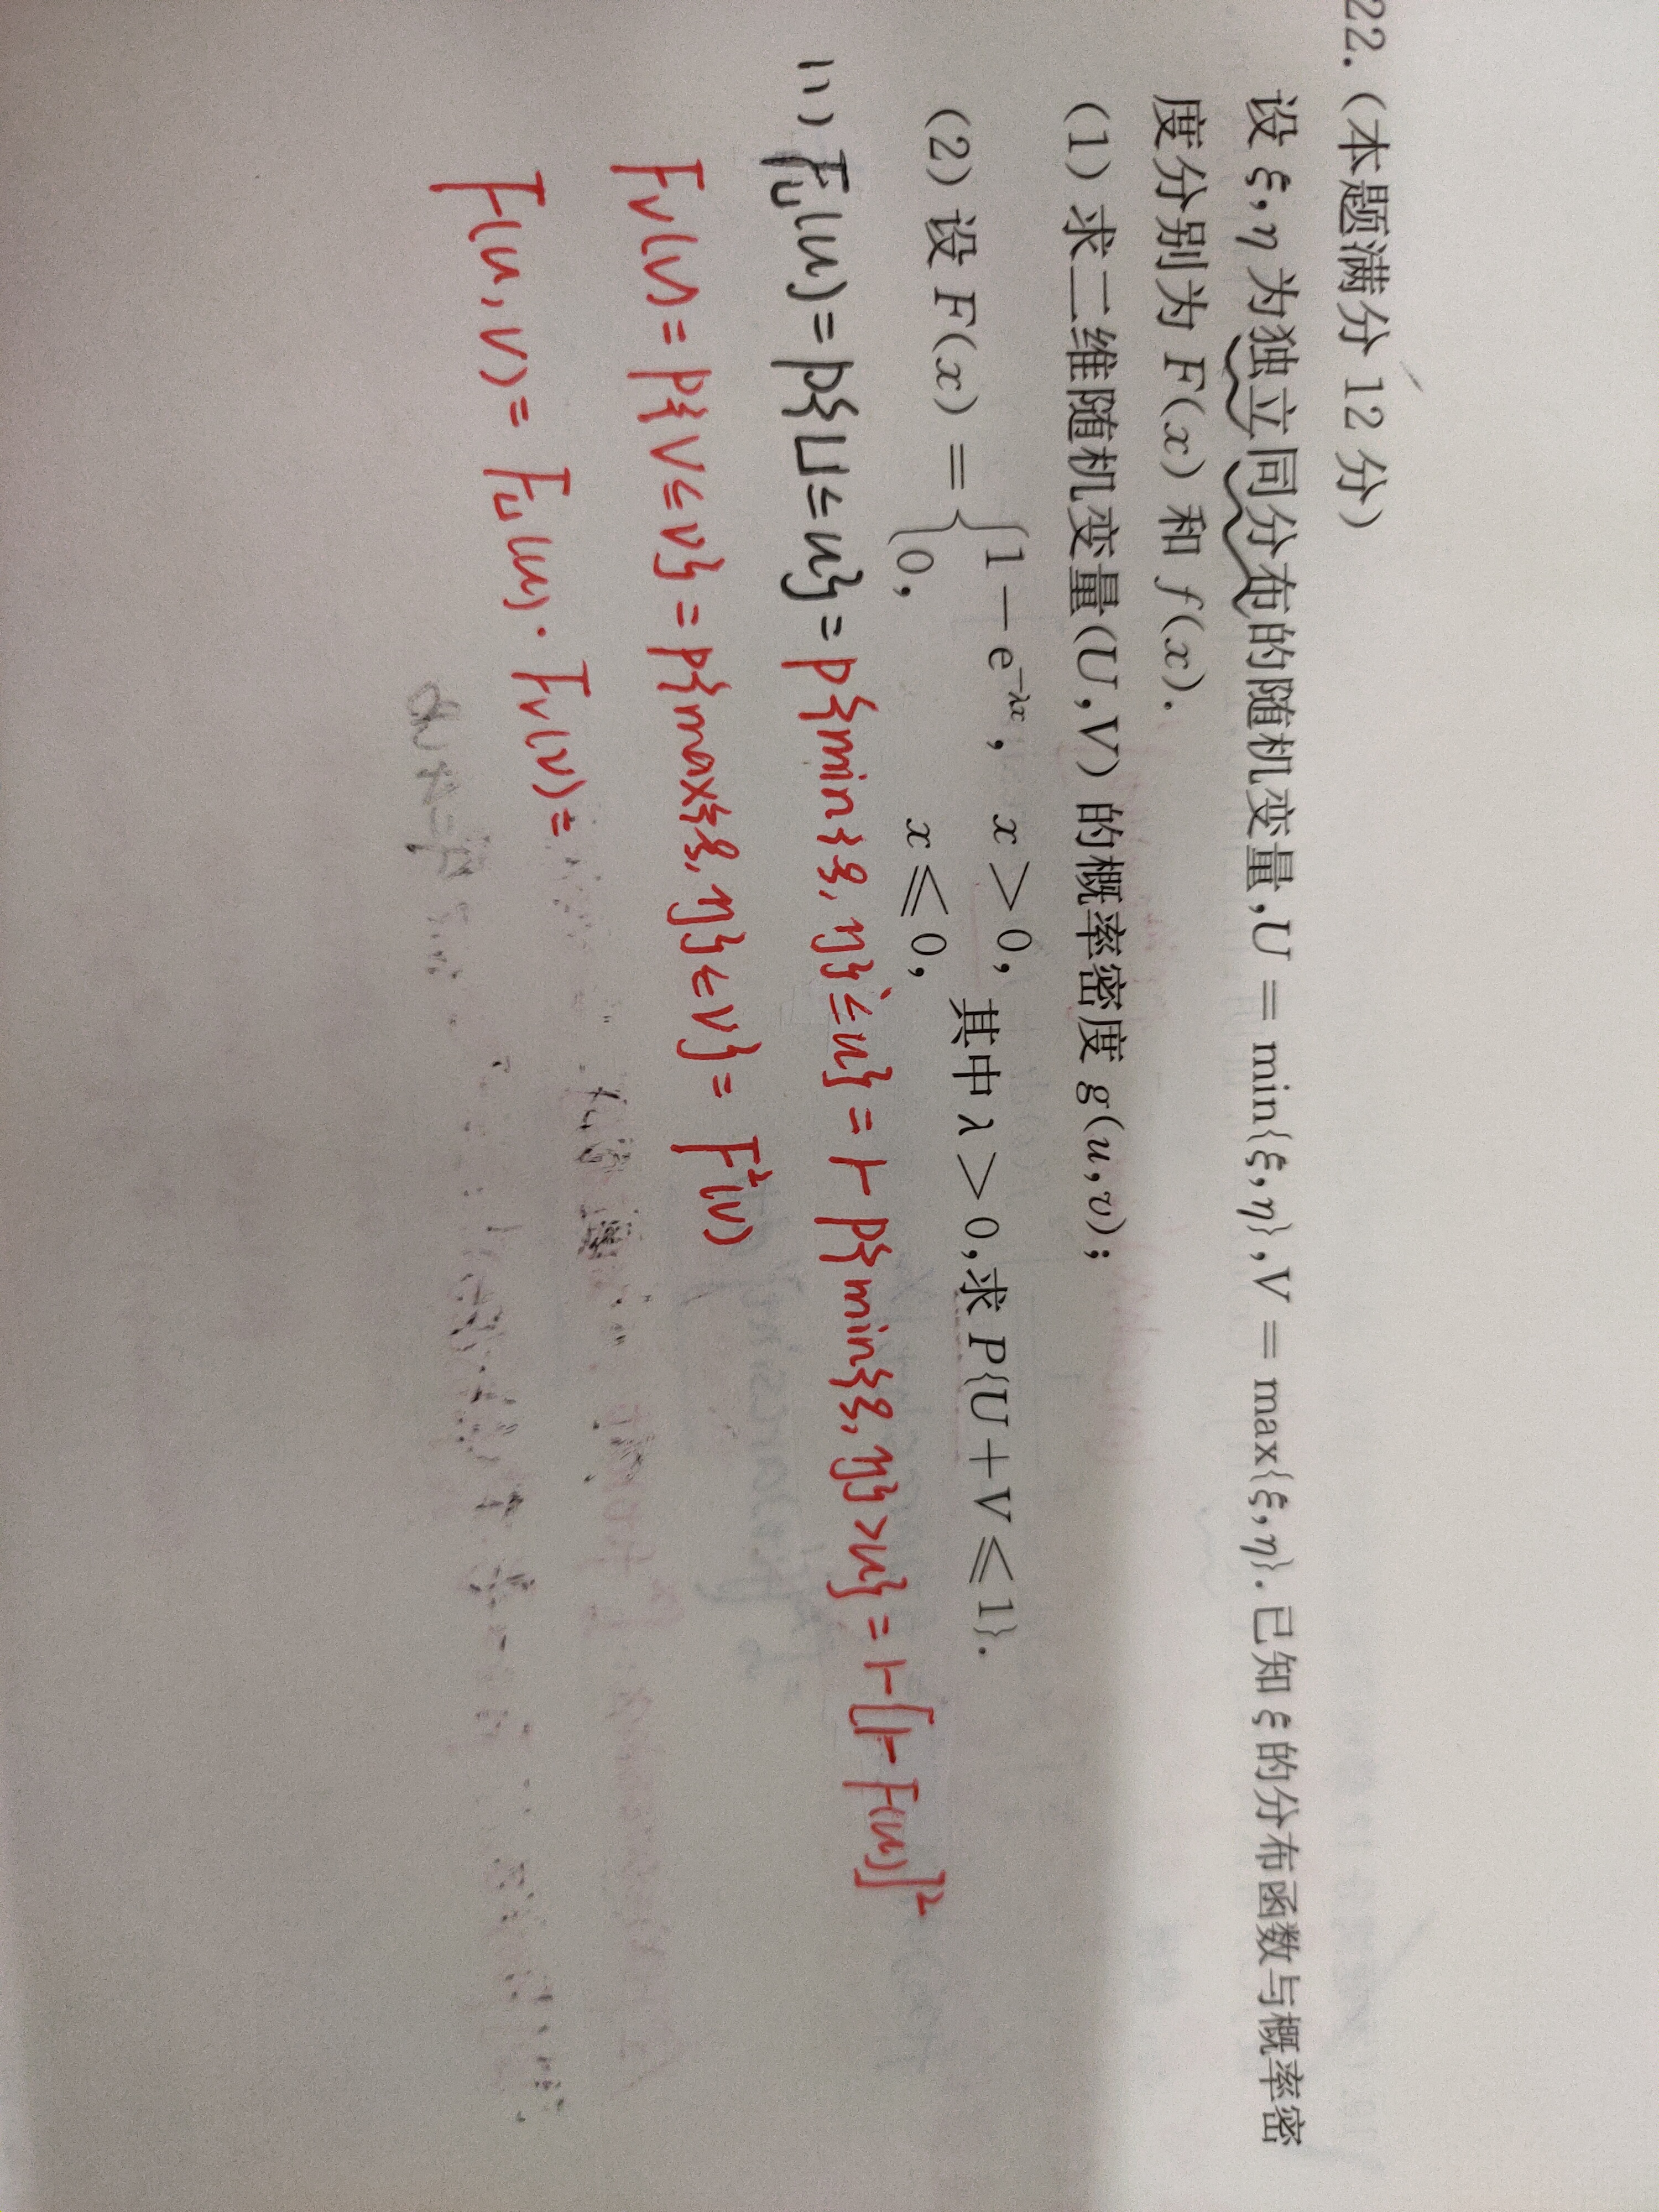 22. (本题满分 12 分)
设 ξ,η 为独立同分布的随机变量,U = min{ξ,η},V = max{ξ,η}. 已知 ξ 的分布函数与概率密
度分别为 F(x) 和 f(x).
(1) 求二维随机变量(U,V) 的概率密度 g(u,v);
(2) 设 F(x) = { 1 - e^{-λx}, x > 0, 0, x ≤ 0, 其中 λ > 0,求 P{U + V ≤ 1}.
(1) F_U(u) = P{U ≤ u} = P{min{ξ, η} ≤ u} = 1 - P{min{ξ, η} > u} = 1 - [1 - F(u)]²
F_V(v) = P{V ≤ v} = P{max{ξ, η} ≤ v} = F²(v)
F(u, v) = F_U(u) · F_V(v) =